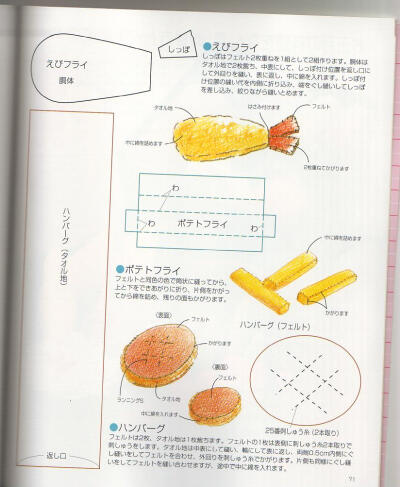 えびフライ
胴体
しっぽ
●えびフライ
しっぽはフェルト2枚重ねを1組として2組作ります。胴体は
タオル地で2枚裁ち、中表にして、しっぽ付け位置を返し口に
して外回りを縫い、表に返し、中に綿を入れます。しっぽ付
け位置の縫い代を内側に折り込み、端をぐし縫いしてしっぽ
を差し込み、絞りながら縫いとめます。
タオル地
はさみ付けます
フェルト
中に綿を詰めます
2枚重ねてかがります
わ
わ
ポテトフライ
わ
ハンバーグ(タオル地)
返し口
●ポテトフライ
フェルトと同色の糸で筒状に縫ってから、
上と下をできあがりに折り、片側をかがっ
てから綿を詰め、残りの面もかがります。
中に綿を詰めます
かがります
ハンバーグ(フェルト)
25番刺しゅう糸(2本取り)
〈表面〉
フェルト
かがります
ランニングS
タオル地
中に綿を入れます
〈裏面〉
フェルト
●ハンバーグ
フェルトは2枚、タオル地は1枚裁ちます。フェルトの1枚は表側に刺しゅう糸2本取りで
刺しゅうをします。タオル地は中表にして縫い、輪にして表に返し、両端0.5cm内側にぐ
し縫いをしてフェルトを合わせ、外回りを刺しゅう糸でかがります。片側も同様にぐし縫
いをしてフェルトを縫い合わせますが、途中で中に綿を入れます。
71